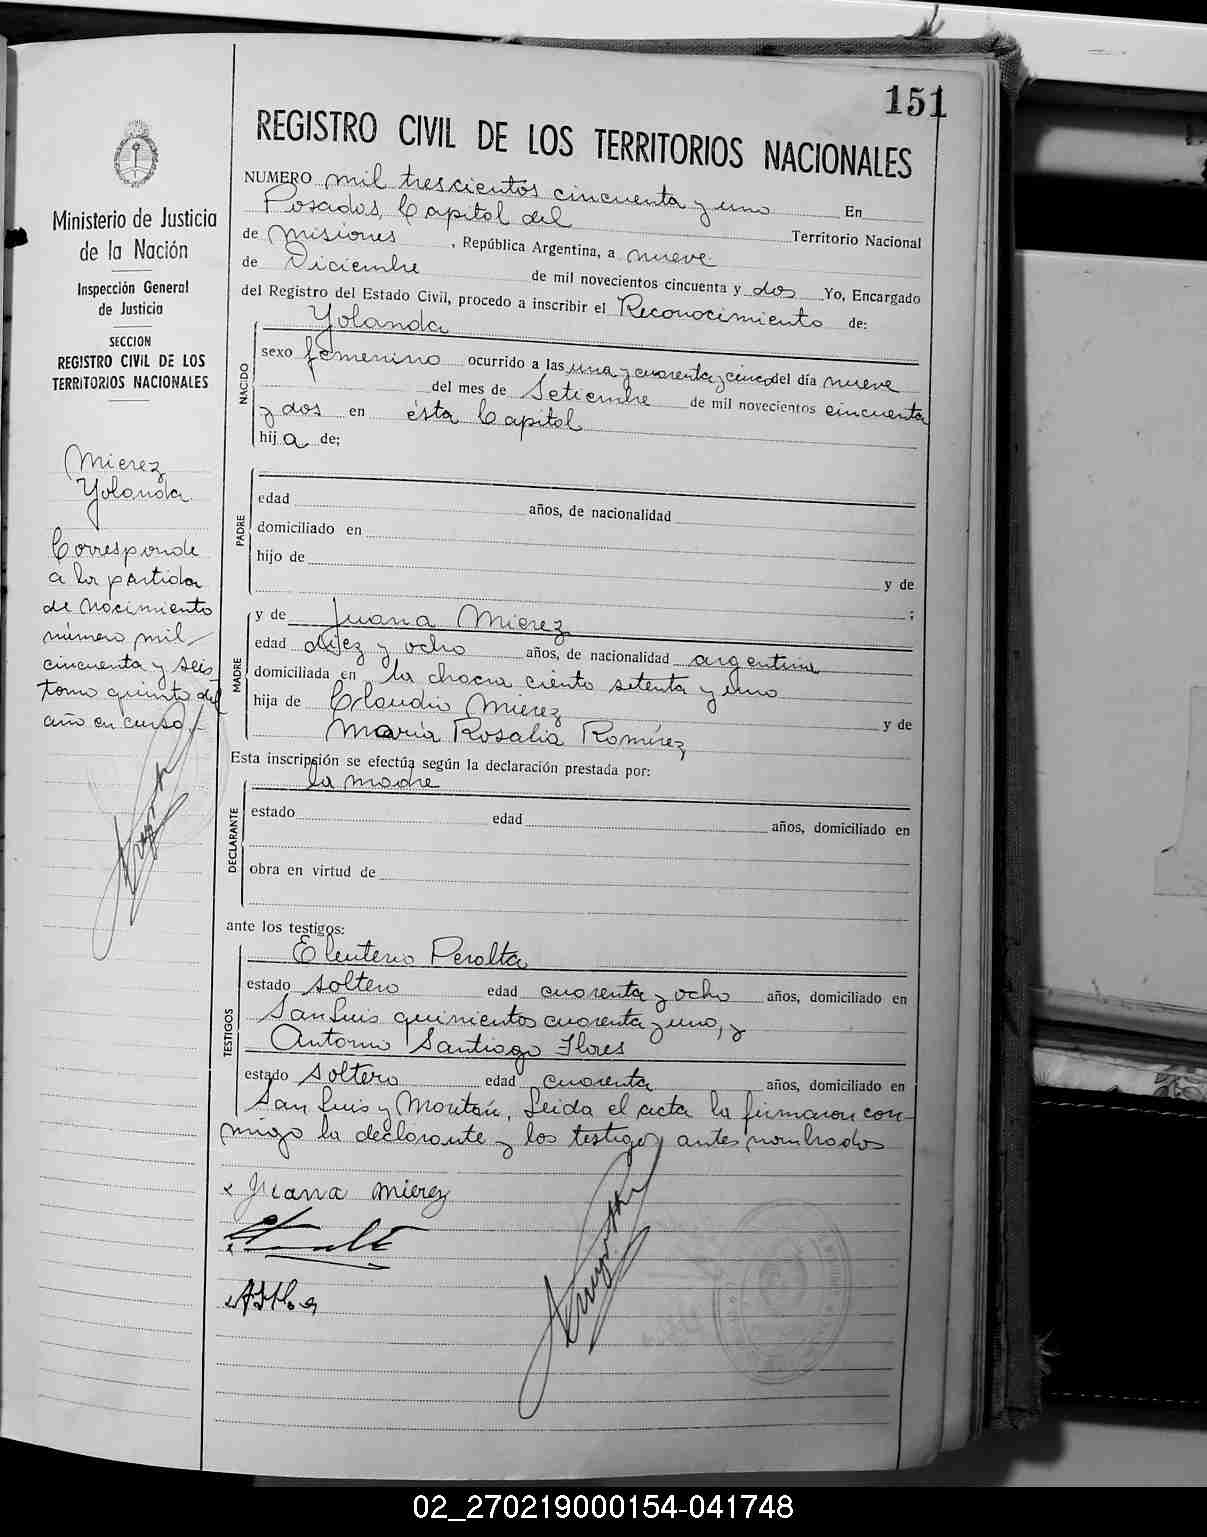 151
REGISTRO CIVIL DE LOS TERRITORIOS NACIONALES
Ministerio de Justicia
de la Nación
Inspección General
de Justicia
SECCION
REGISTRO CIVIL DE LOS
TERRITORIOS NACIONALES
Mierez
Yolanda
Corresponde
a la partida
de nacimiento
número mil
cincuenta y seis
tomo quinto del
año en curso.-
NUMERO mil trescientos cincuenta y uno En
Posadas, Capital del Territorio Nacional
de Misiones, República Argentina, a nueve
de Diciembre de mil novecientos cincuenta y dos Yo, Encargado
del Registro del Estado Civil, procedo a inscribir el Reconocimiento de:
NACIDO
Yolanda
sexo femenino ocurrido a las una y cuarenta y cinco del día nueve
del mes de Setiembre de mil novecientos cincuenta
y dos en ésta Capital
hija de;
PADRE
edad años, de nacionalidad
domiciliado en
hijo de
y de
;
MADRE
y de Juana Mierez
edad diez y ocho años, de nacionalidad argentina
domiciliada en la chacra ciento setenta y uno
hija de Claudio Mierez y de
María Rosalía Romírez
Esta inscripción se efectúa según la declaración prestada por:
la madre
DECLARANTE
estado edad años, domiciliado en
obra en virtud de
ante los testigos:
TESTIGOS
Eleuterio Peralta
estado soltero edad cuarenta y ocho años, domiciliado en
San Luis quinientos cuarenta y uno, y
Antonio Santiago Flores
estado soltero edad cuarenta años, domiciliado en
San Luis y Montán. Leida el acta la firmaron con-
migo la declarante y los testigos antes nombrados
x Juana Mierez
02_270219000154-041748